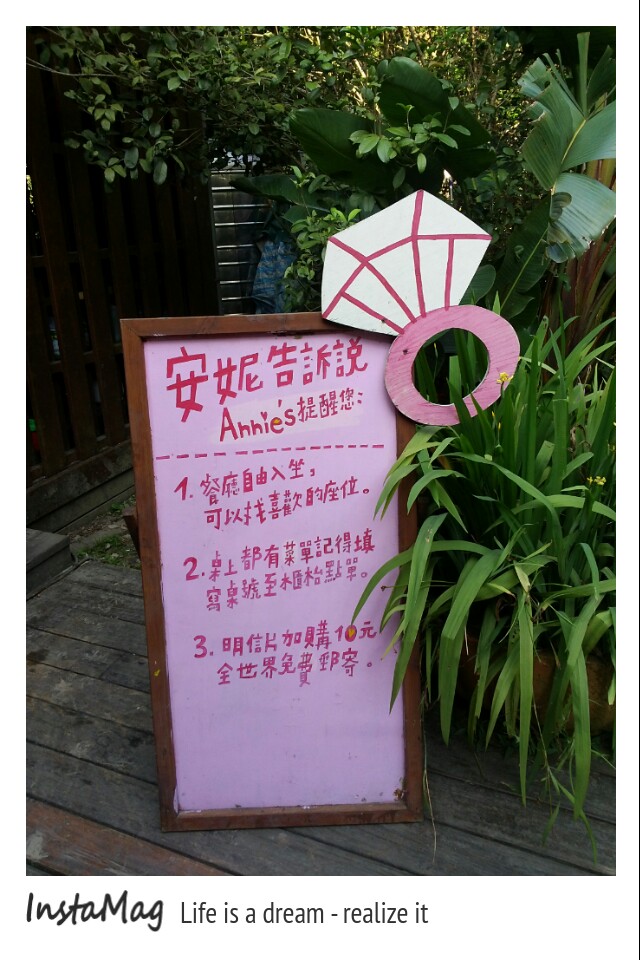 安妮告訴說
Annie's提醒您:
1. 餐廳自由入坐,
可以找喜歡的座位。
2. 桌上都有菜單記得填
寫桌號至櫃枱點單。
3. 明信片加購10元
全世界免費郵寄。
InstaMag Life is a dream - realize it